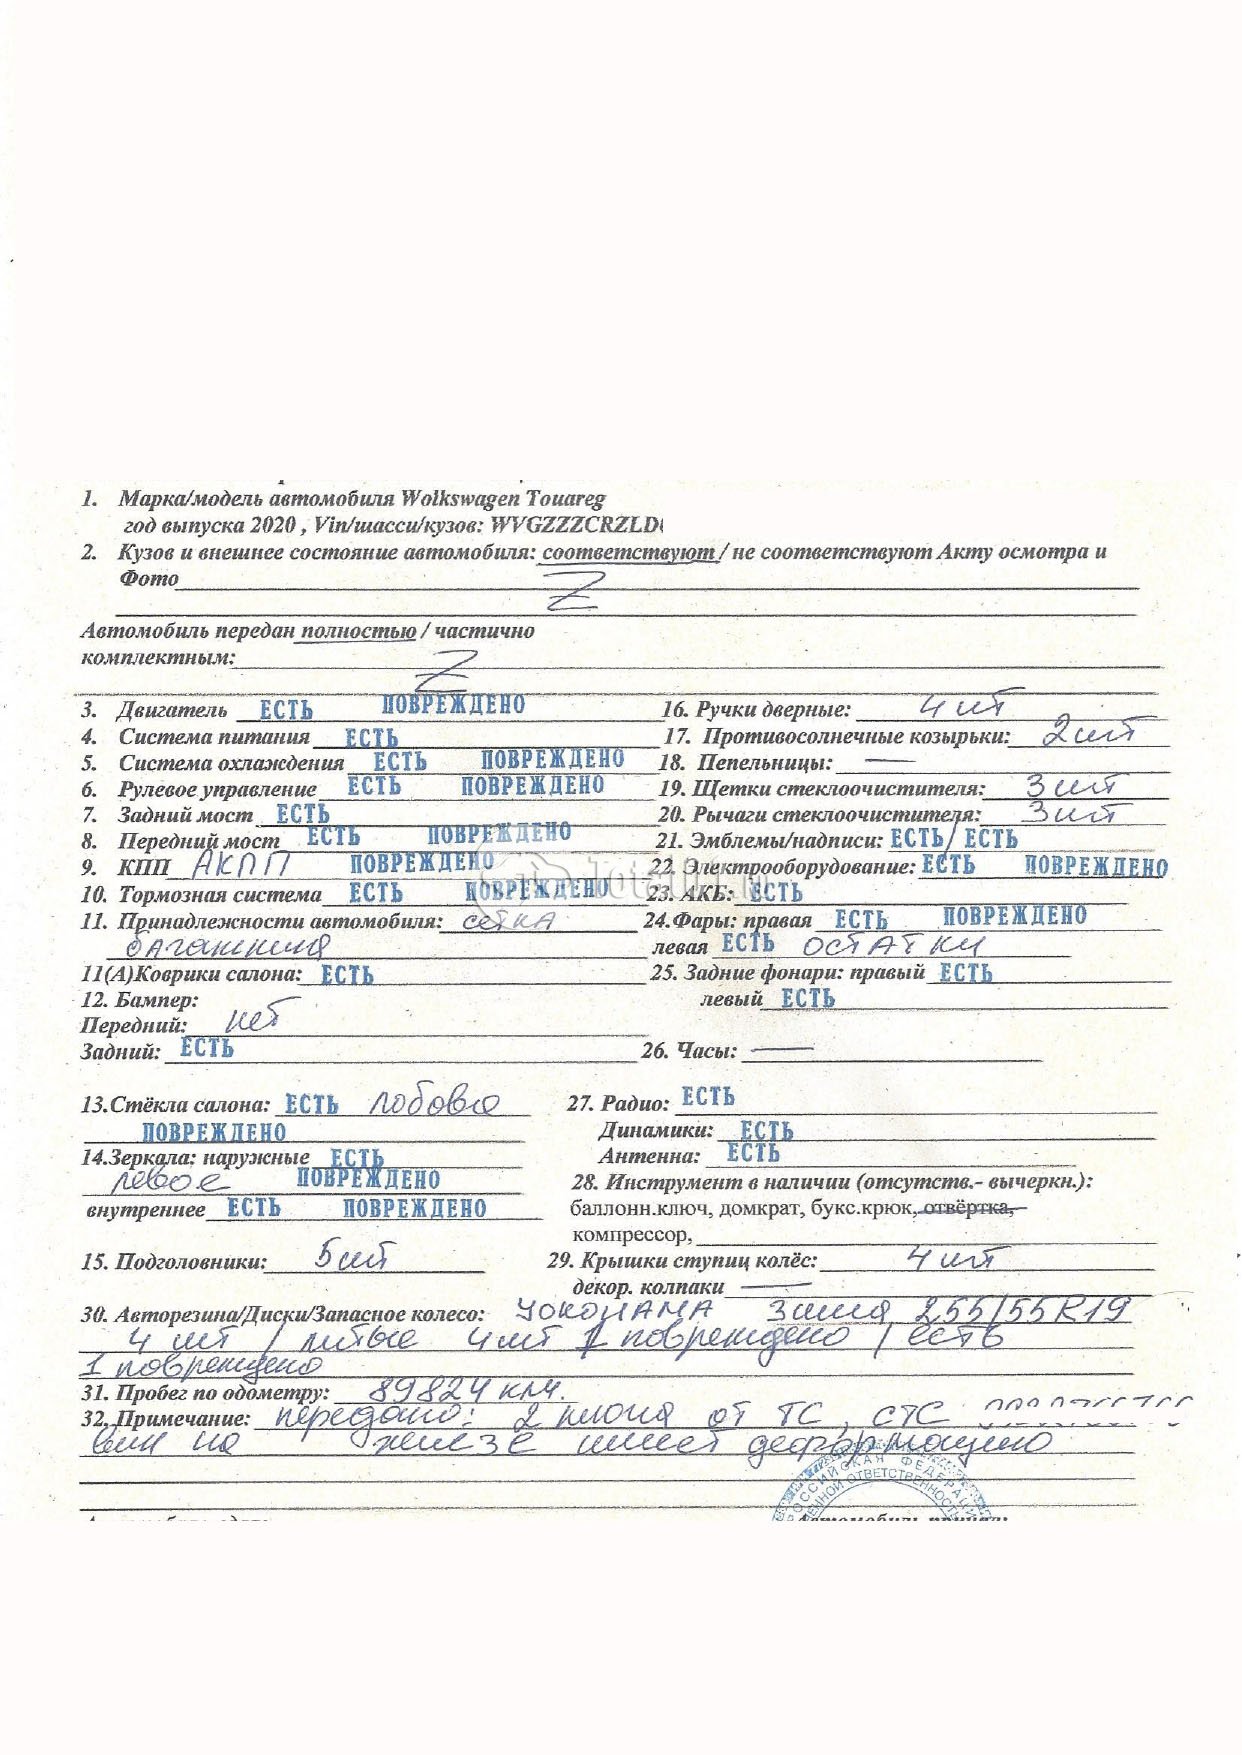 1. Марка/модель автомобиля Wolkswagen Touareg
год выпуска 2020 , Vin/шасси/кузов: WVGZZZCRZLD
2. Кузов и внешнее состояние автомобиля: соответствуют / не соответствуют Акту осмотра и
Фото Z
Автомобиль передан полностью / частично
комплектным: Z
3. Двигатель ЕСТЬ ПОВРЕЖДЕНО 16. Ручки дверные: 4 шт
4. Система питания ЕСТЬ 17. Противосолнечные козырьки: 2 шт
5. Система охлаждения ЕСТЬ ПОВРЕЖДЕНО 18. Пепельницы: —
6. Рулевое управление ЕСТЬ ПОВРЕЖДЕНО 19. Щетки стеклоочистителя: 3 шт
7. Задний мост ЕСТЬ 20. Рычаги стеклоочистителя: 3 шт
8. Передний мост ЕСТЬ ПОВРЕЖДЕНО 21. Эмблемы/надписи: ЕСТЬ / ЕСТЬ
9. КПП АКПП ПОВРЕЖДЕНО 22. Электрооборудование: ЕСТЬ ПОВРЕЖДЕНО
10. Тормозная система ЕСТЬ ПОВРЕЖДЕНО 23. АКБ: ЕСТЬ
11. Принадлежности автомобиля: сетка 24.Фары: правая ЕСТЬ ПОВРЕЖДЕНО
багажника левая ЕСТЬ ОСТАТКИ
11(А)Коврики салона: ЕСТЬ 25. Задние фонари: правый ЕСТЬ
12. Бампер: левый ЕСТЬ
Передний: нет
Задний: ЕСТЬ 26. Часы: —
13.Стёкла салона: ЕСТЬ лобовое 27. Радио: ЕСТЬ
ПОВРЕЖДЕНО Динамики: ЕСТЬ
14.Зеркала: наружные ЕСТЬ Антенна: ЕСТЬ
левое ПОВРЕЖДЕНО 28. Инструмент в наличии (отсутств.- вычеркн.):
внутреннее ЕСТЬ ПОВРЕЖДЕНО баллонн.ключ, домкрат, букс.крюк, отвёртка,
компрессор,
15. Подголовники: 5 шт 29. Крышки ступиц колёс: 4 шт
декор. колпаки —
30. Авторезина/Диски/Запасное колесо: YOKOHAMA Зима 255/55R19
4 шт / литые 4 шт 1 повреждено / есть
1 повреждено
31. Пробег по одометру: 89824 км.
32. Примечание: передано: 2 ключа от ТС, СТС
вин на железе имеет деформацию
РОССИЙСКАЯ ФЕДЕРАЦИ
ЕННОЙ ОТВЕТСТВЕННОСТЬ
Автомобиль принял: